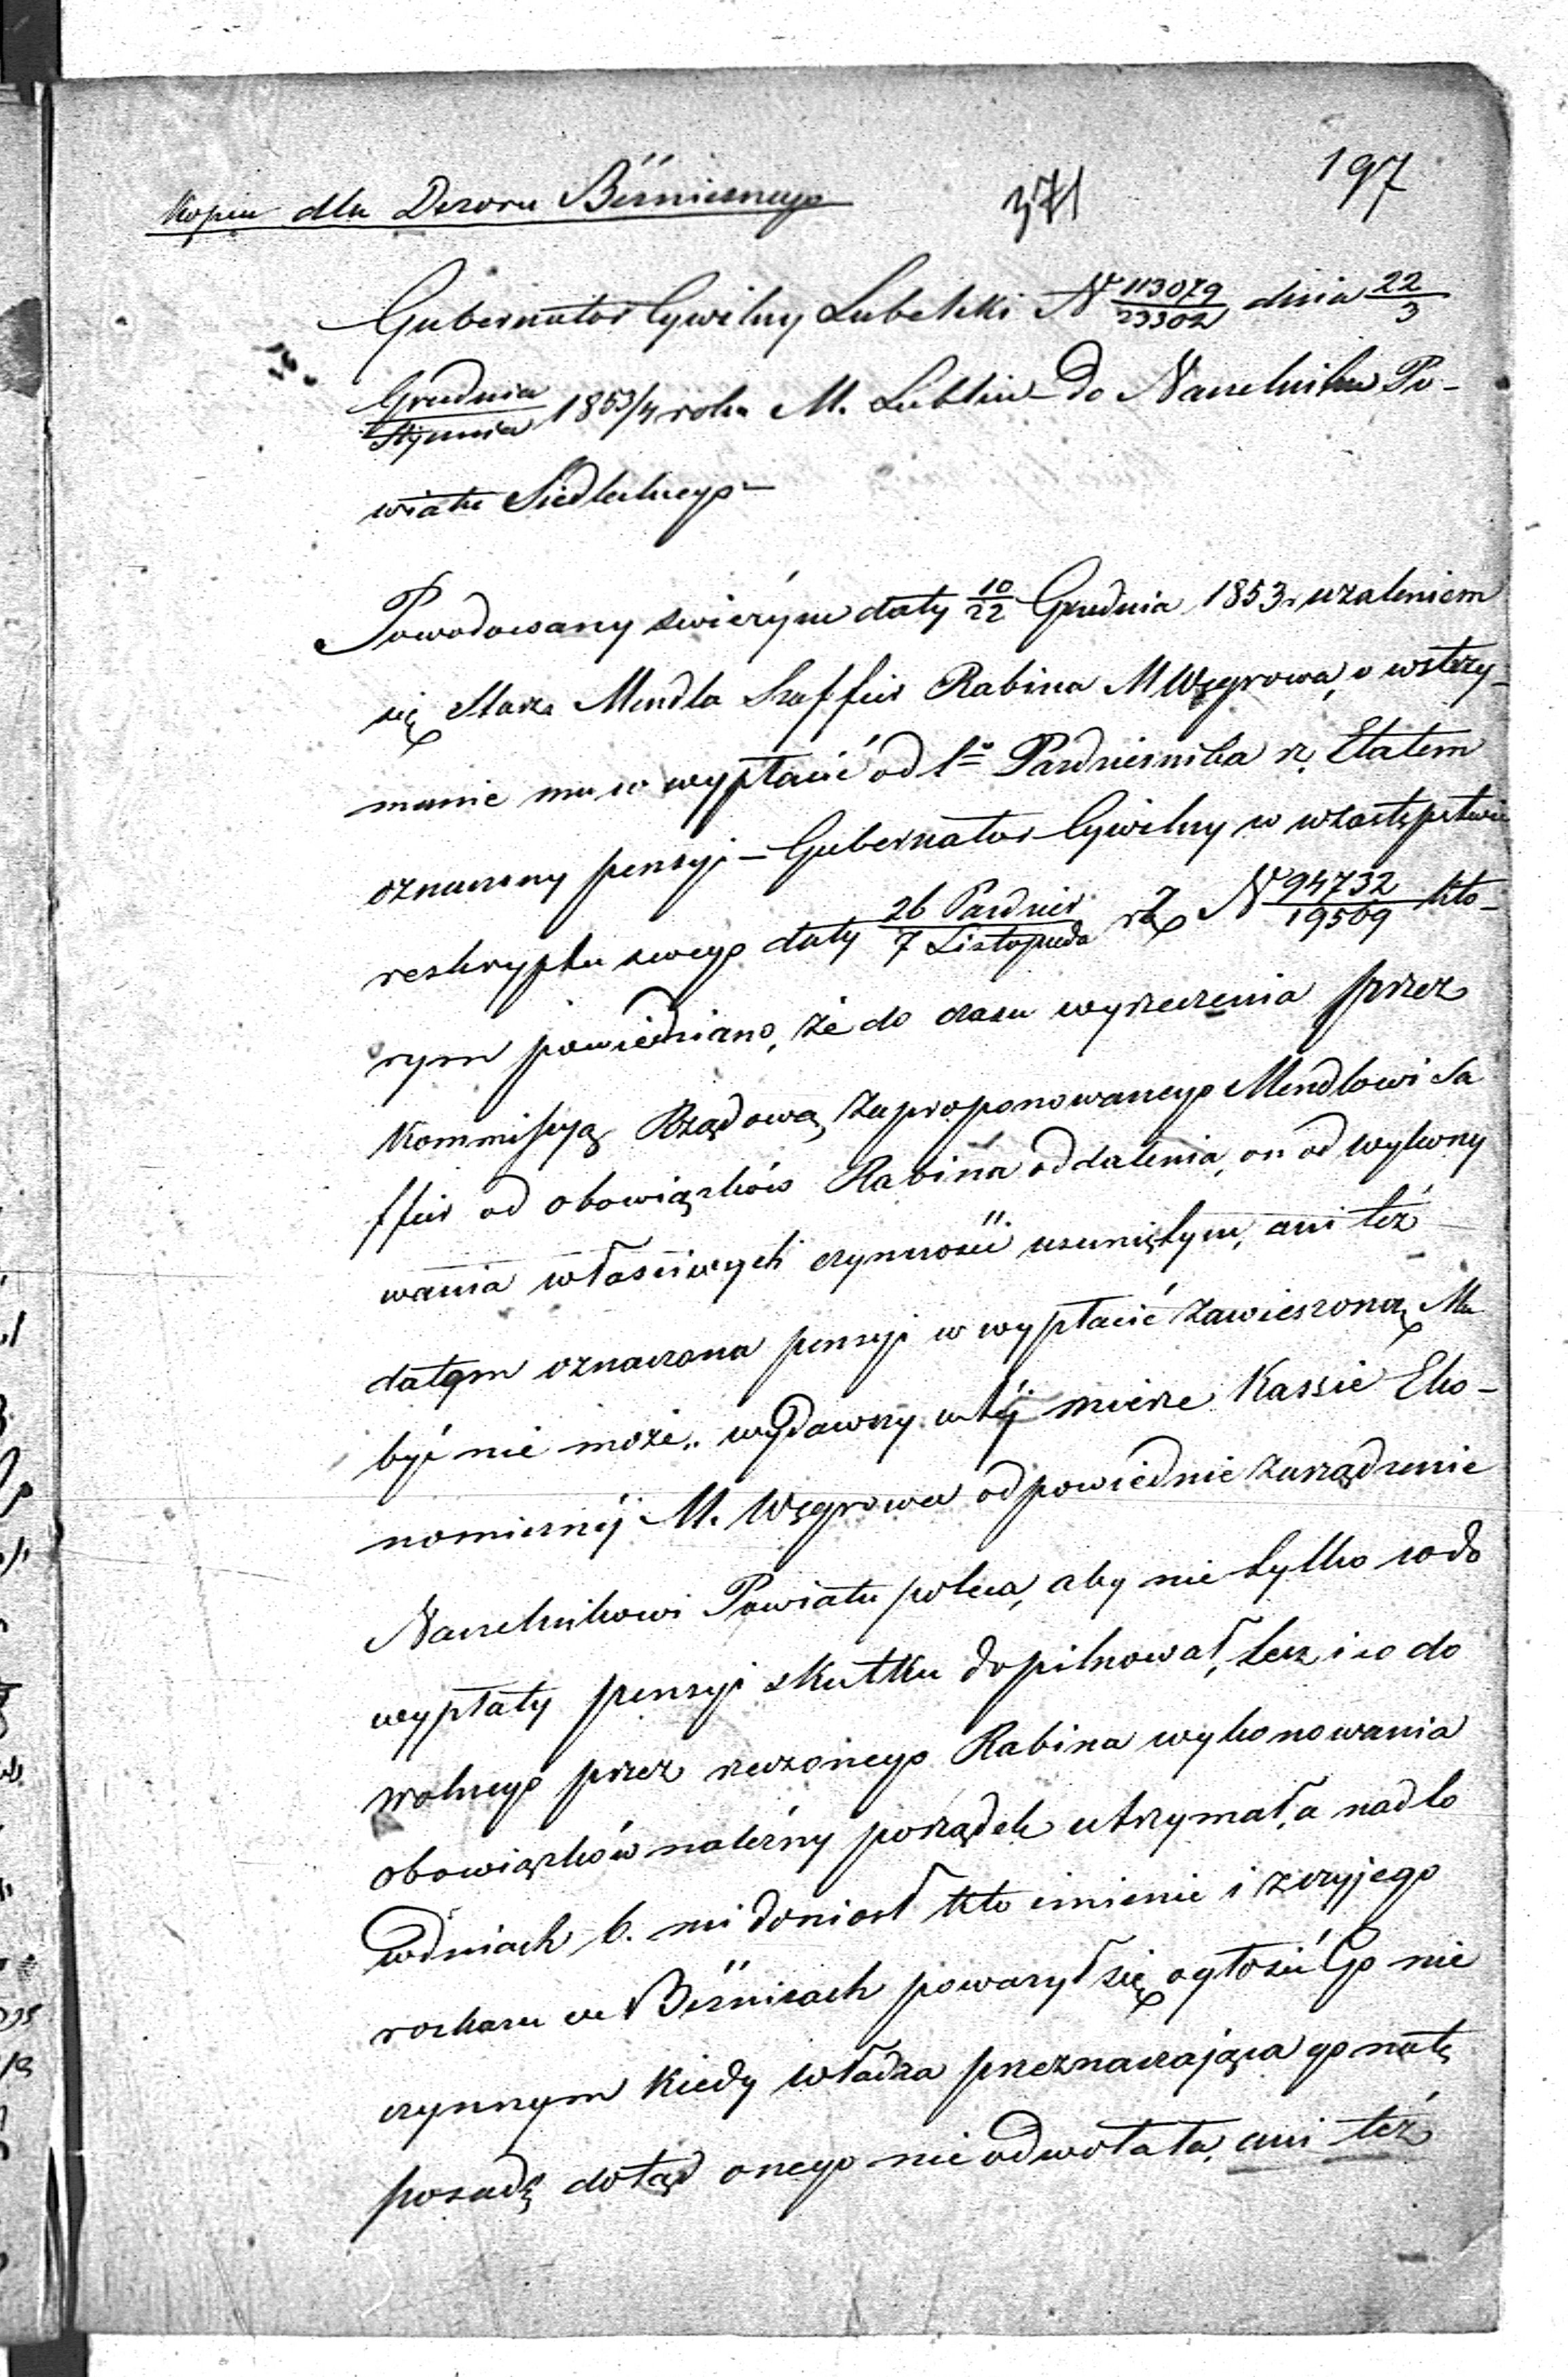 197
371
Kopia dla Dozoru Bóżnicznego
Gubernator Cywilny Lubelski N 113079/23302 dnia 22/3
Grudnia/Stycznia 1853/4 roku M. Lublin – Do Naczelnika Po-
wiatu Siedleckiego –
Powodowany świeżym daty 10/22 Grudnia 1853 r użaleniem
się Mendla Szaffir Rabina M Węgrowa, o wstrzy-
manie mu w wypłacie od 1o Października r. Etatem
oznaczonej pensyi – Gubernator Cywilny w
reskryptu swego daty 26 Paździer/7 Listopada N 94732/19569 któ-
rym powiedziano, że do czasu wyrzeczenia przez
Kommissyą Rządową, zaproponowanego Mendlowi Sa
ffir od obowiązków Rabina oddalenia, on od wykony
wania właściwych czynności usuniętym, ani też
datąm oznaczona pensyi w wypłacie zawieszoną Mu
być nie może„ wydawszy w téj mierze Kassie Eko-
nomicznéj M. Węgrowa odpowiednie zarządzenie
Naczelnikowi Powiatu poleca, aby nie tylko co do
wypłaty pensyi skutku dopilnował, lecz i co do
wolnego przez rzeczonego Rabina wykonowania
obowiązków należny porządek utrzymał, a nadto
w dniach 6. mi doniosł kto imienie i z czyjego
rozkazu w Bóżnicach poważył się ogłosić Go nie
czynnym kiedy władza przeznaczająca go na tę
posadę dotąd onego nie odwołała, ani też